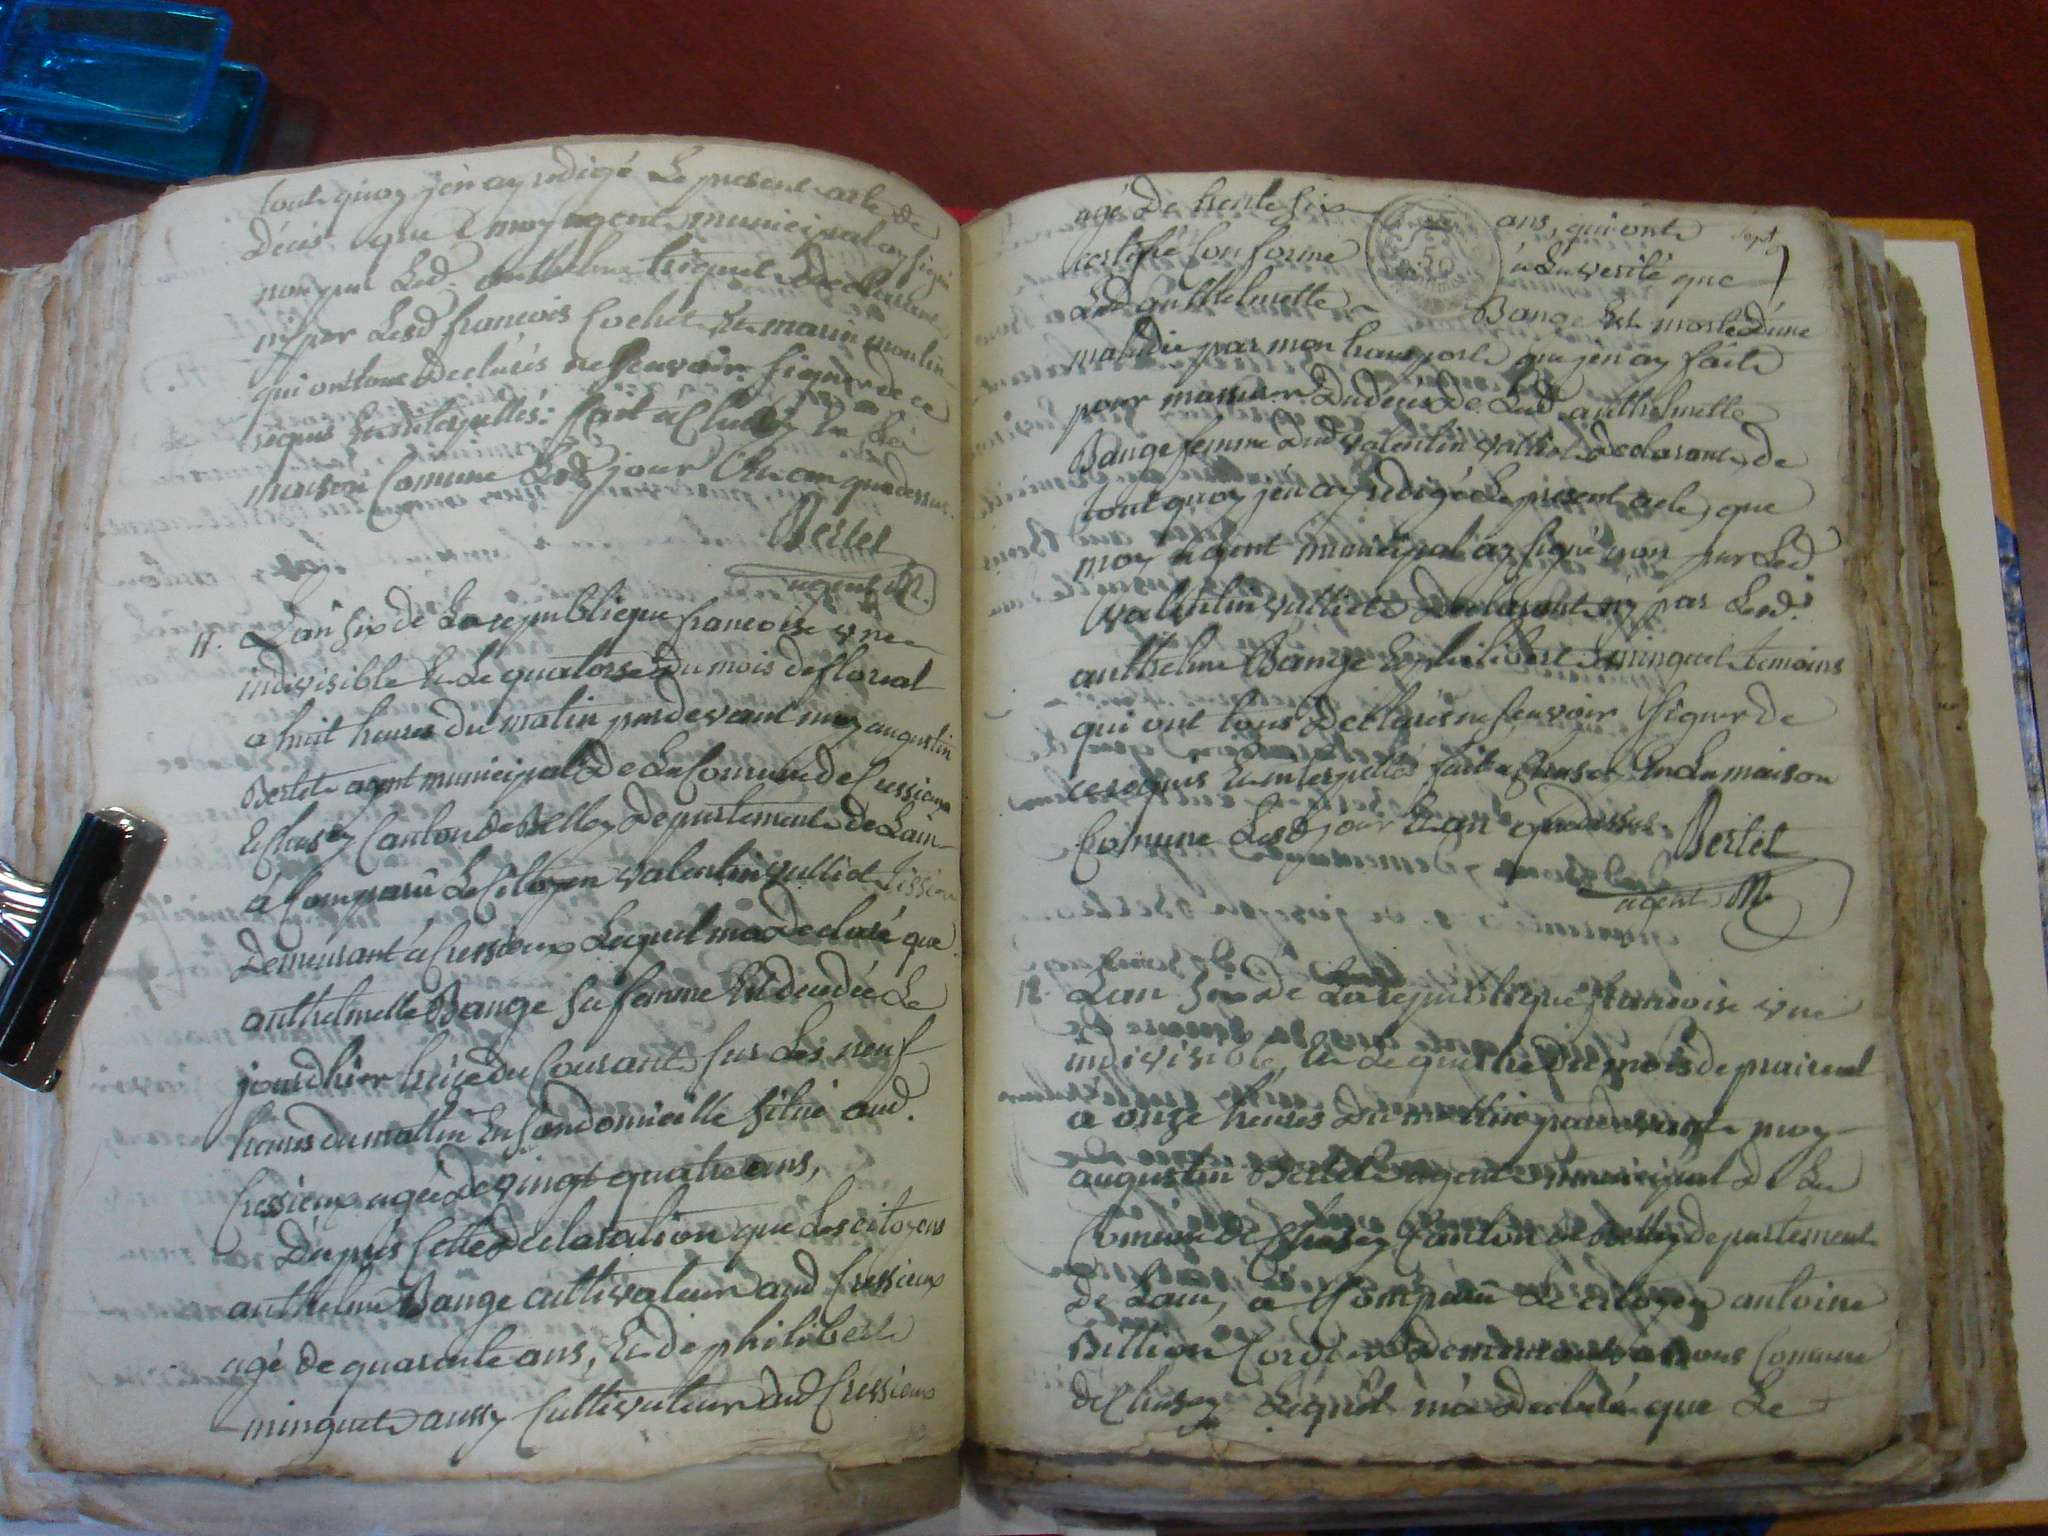 tout quoy j'en ay redigé Le present acte de
décès que moy agent municipal ay signé
non par Led. anthelme triquet declarant
ny par Lesd françois Cochet et marin moulin
qui ont tous declarés ne scavoir signer de ce
requis et interpellés: fait à Chazey en La
maison Comune Lesd jour et an que dessus.
Bertet
agent M.
11. L'an six de La republique francoise une
indivisible et Le quatorse du mois de floreal
a huit heures du matin pardevant moy augustin
Bertet agent municipal de La Comune de Cressieux
et Chazey Canton de Belley departement de Lain
à Comparû Le Citoyen valentin vulliet
demeurant à Cressieux Lequel m'a declaré que
anthelmette Bange sa femme est decedée Le
jourdhier treize du Courant sur Les neuf
heures du mattin en son domicille situé aud.
Cressieux agée de vingt quatre ans,
D'après Cette declaration que Les citoyens
anthelme Bange cultivateur aud Cressieux
agé de quarente ans, et de philibert
minguet aussy Cultivateur aud Cressieux
agé de trente six ans, qui ont
certifié Conforme à La verité que
Lad anthelmette Bange est morte d'une
maladie par mon transport que j'en ay fait
pour m'assurer du deces de Lad anthelmette
Bange femme dud valentin vulliet declarant de
tout quoy j'en ay redigé Le present acte, que
moy agent municipal ay signé non par Led
valentin vulliet declarant ny par Lesd.
anthelme Bange et philibert minguet temoins
qui ont tous declarés ne scavoir signer de
ce requis et interpellés fait a Chazey en La maison
Comune Lesd jour et an que dessus.
Bertet
agent M.
Lan six de La republique francoise une
indivisible, et Le quatre du mois de prairial
a onze heures du mattin pardevant moy
augustin Bertet agent municipal de La
Comune de Chazey Canton de Belley departement
de Lain, a Comparû Le citoyen antoine
Billion Cordier demeurant a nous Comune
de Chazey Lequel m'a declaré que Le